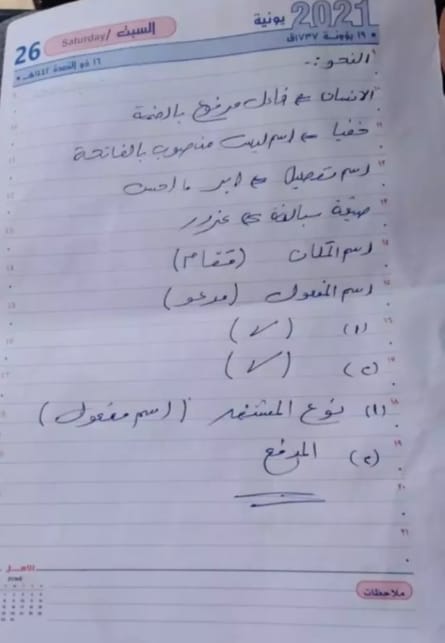 2021 يونية
السبت /Saturday 26
١٩ بؤونة ١٧٣٧ق
١٦ ذو القعدة ١٤٤٢هـ
النحو :-
الانسان ⇐ فاعل مرفوع بالضمة
خفيا ⇐ اسم ليت منصوب بالفاتحة
اسم تفضيل ⇐ ابر ما احسن
صيغة مبالغة ⇐ غرور
اسم المكان (مقام)
اسم المفعول (مدعو)
(١) (✓)
(٢) (✓)
(١) نوع المشتق (اسم مفعول)
(٢) المدفع
ملاحظات